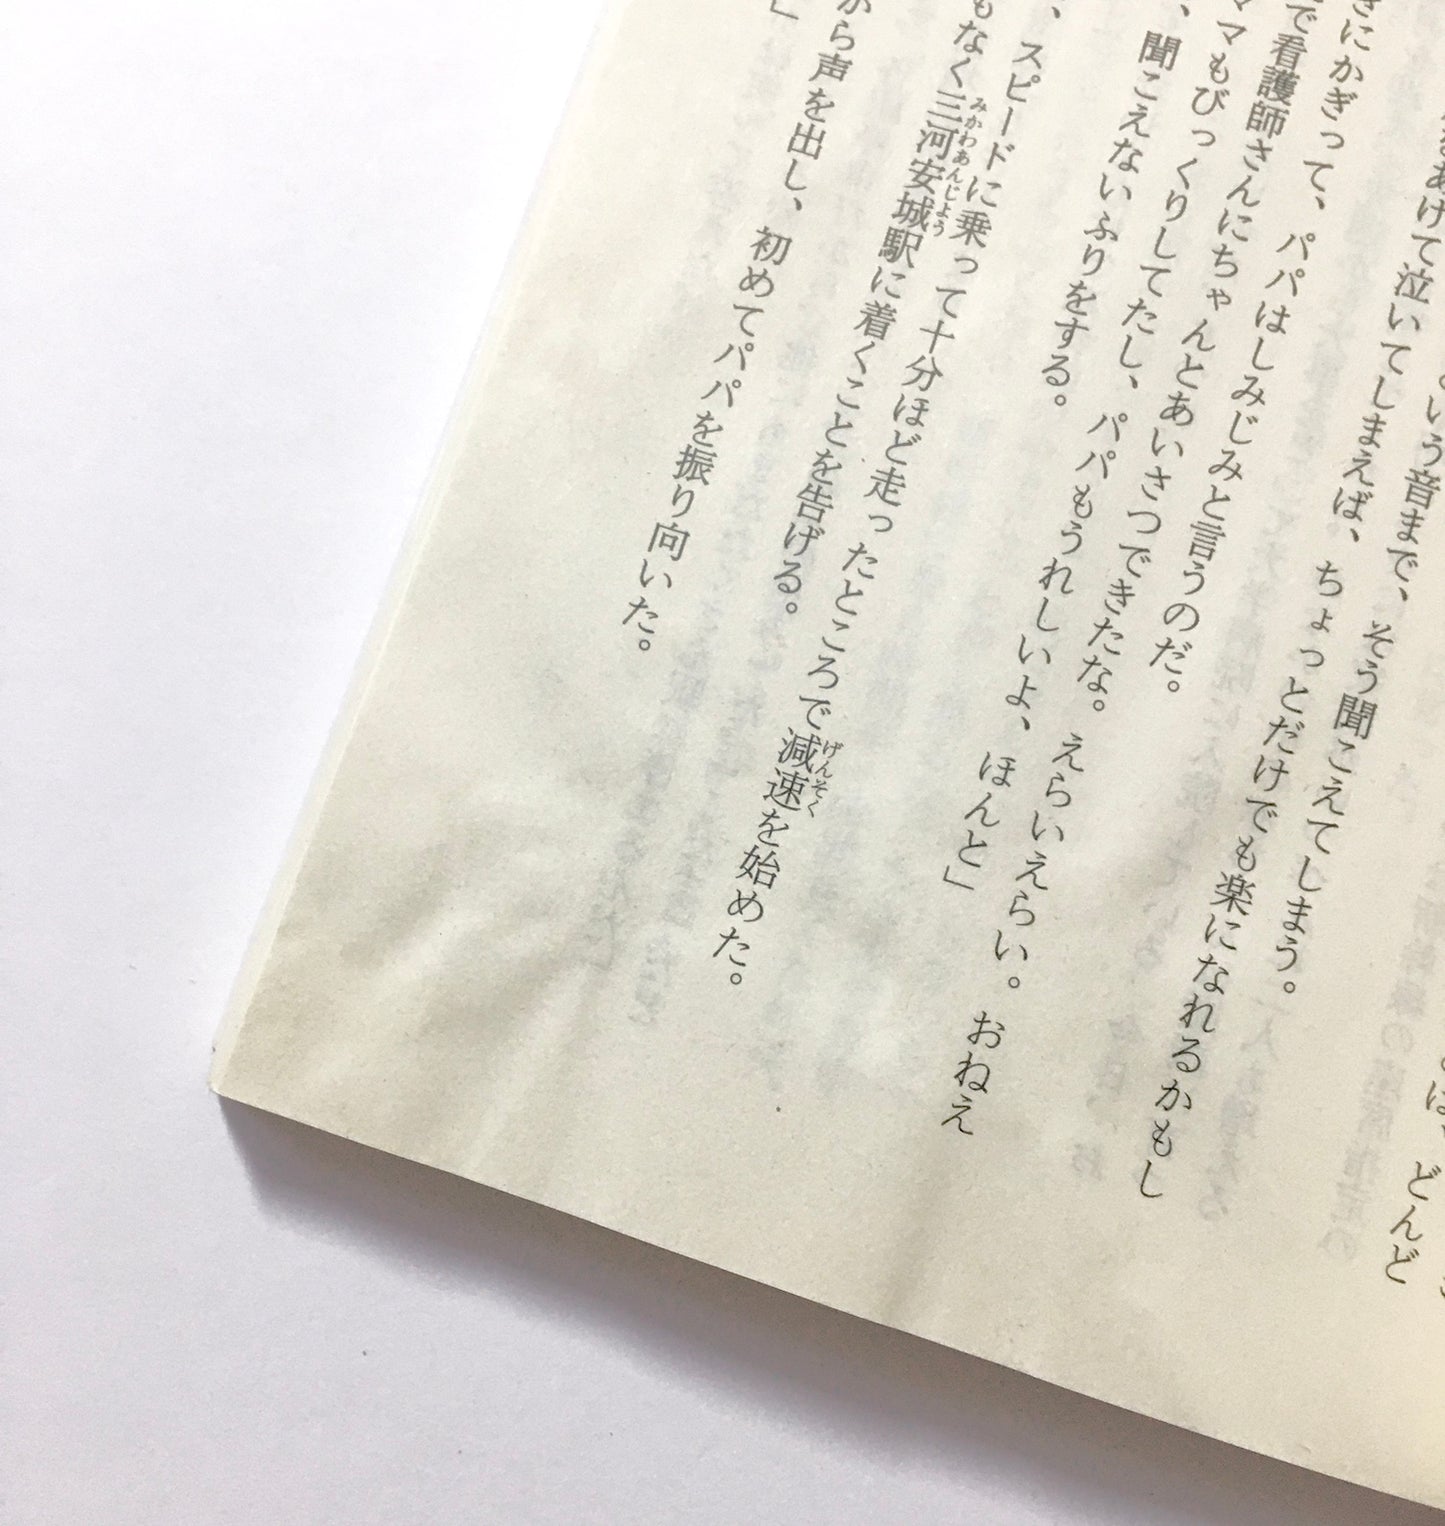 どんど
という音まで、そう聞こえてしまう。
あけて泣いてしまえば、ちょっとだけでも楽になれるかもし
にかぎって、パパはしみじみと言うのだ。
で看護師さんにちゃんとあいさつできたな。えらいえらい。おねえ
ママもびっくりしてたし、パパもうれしいよ、ほんと」
、聞こえないふりをする。
、スピードに乗って十分ほど走ったところで減速を始めた。
げんそく
もなく三河安城駅に着くことを告げる。
みかわあんじょう
から声を出し、初めてパパを振り向いた。
」